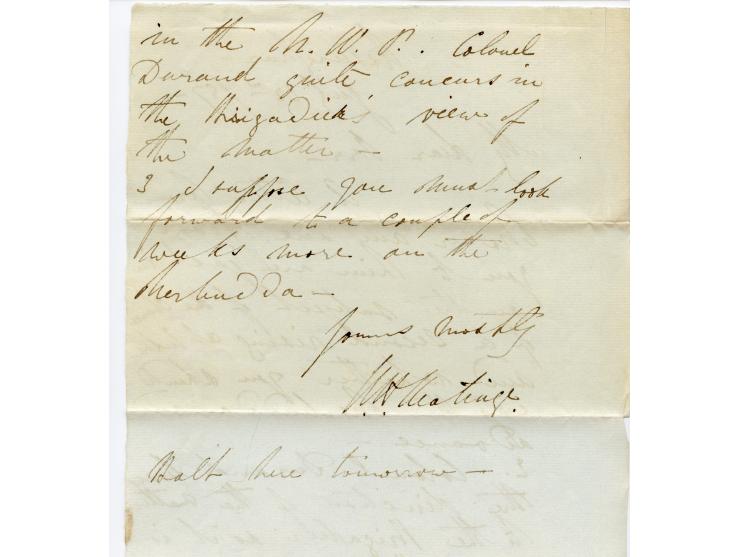 in the N. W. P.. Colonel
Durand quite concurs in
the Brigadier's view of
the matter —
3 I suppose you must look
forward to a couple of
weeks more on the
Nerbudda —
Yours
Keatinge.
Halt here tomorrow —